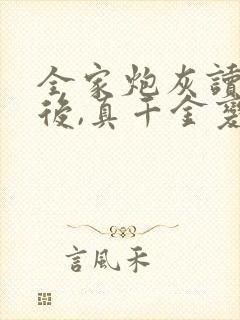 全家炮灰讀
後,真千金
言風禾